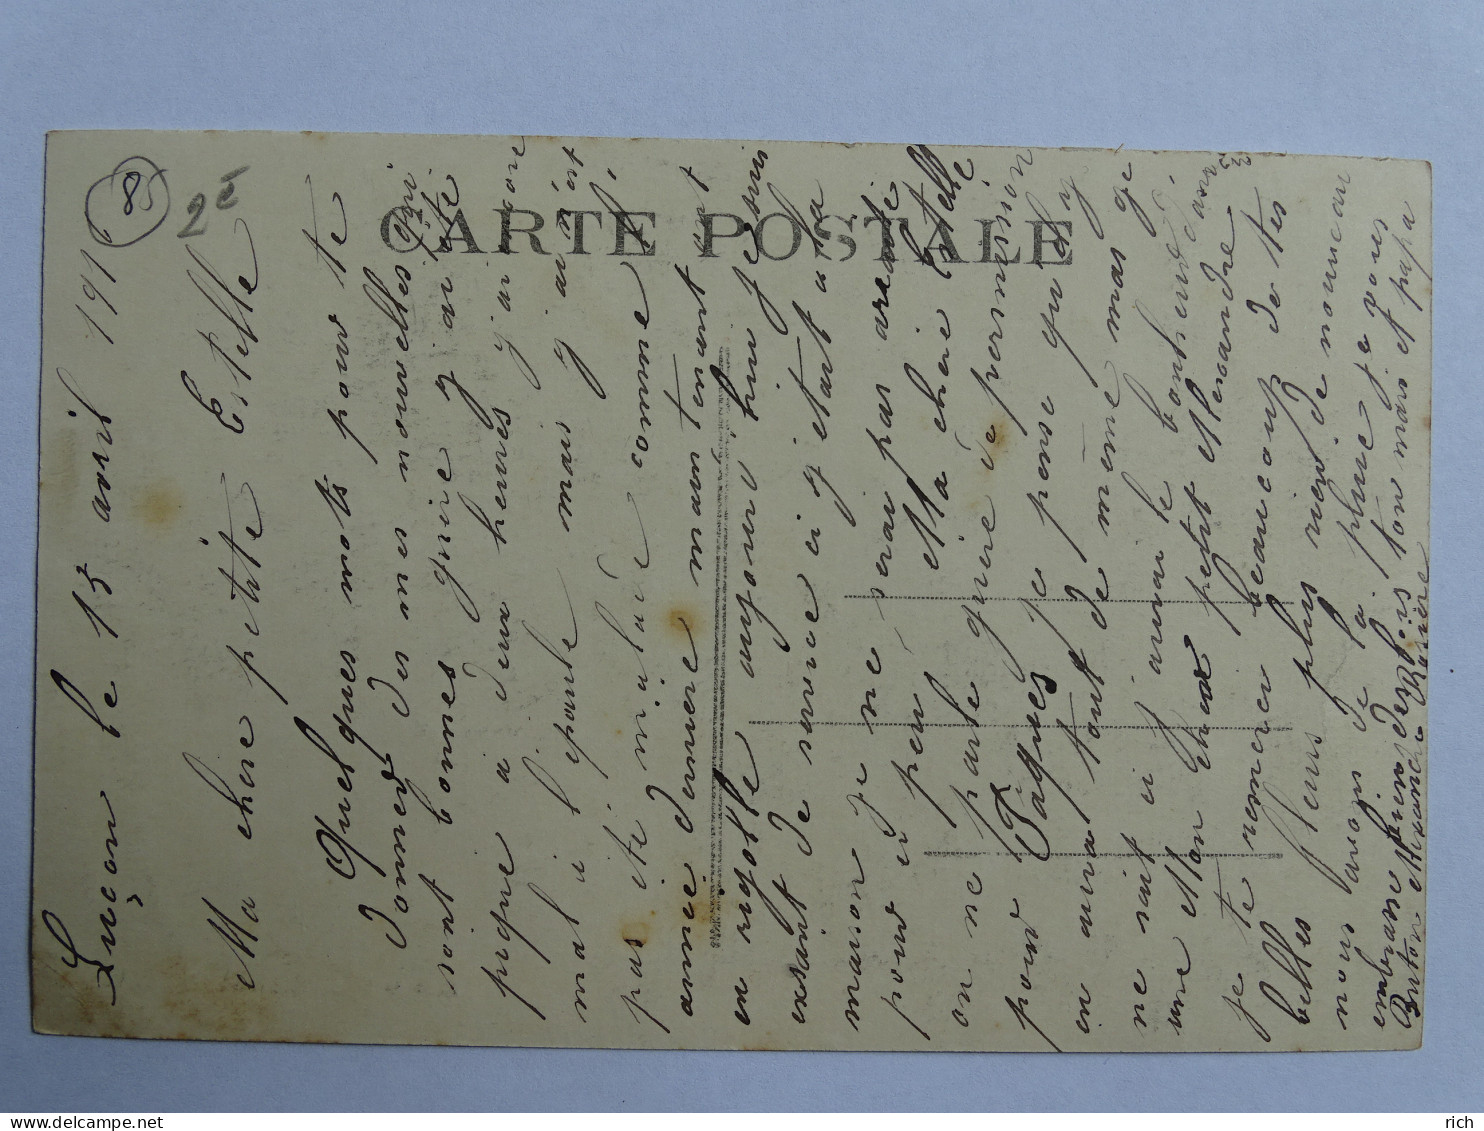 CARTE POSTALE
85
2€
Luçon le 15 avril 191
Ma chere petite Estelle
Quelques mots pour te
donner des mes nouvelles qui
sont bonnes guere j'ai été
piqué a deux heures j'ai encore
mal a l'epaule mais j'ai
pas été malade comme
année derniere maintenant
en rigole aujourd hui je suis
exsant de service si j'etait a la
maison je ne serai pas areanté
pour si peu Ma chere Estelle
on ne parle guere de permission
pour Paques je pense qu'el y
en aura tout de même mas ge
ne sait si j'aurai le bonheur d'avoir
une Mon cher petit Alexandre
je te remerci beaucoup de tes
belles fleurs plus rien de nouveau
nous avons de la pluie je vous
embrasse bien des fois ton mari et papa